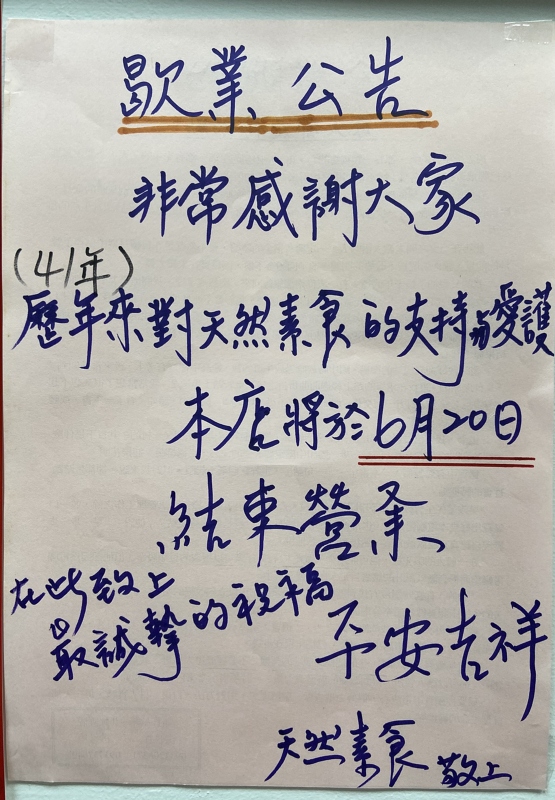 歇業公告
非常感謝大家
(41年)
歷年來對天然素食的支持與愛護
本店將於6月20日
結束營業
在此致上
最誠摯的祝福
平安吉祥
天然素食 敬上